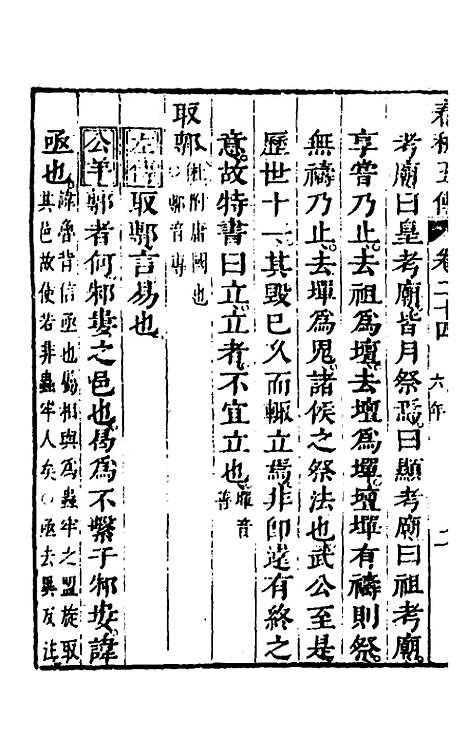 春秋五傳　卷二十四　六年
考廟曰皇考廟皆月祭焉曰顯考廟曰祖考廟
享嘗乃止去祖爲壇去壇爲墠壇墠有禱則祭
無禱乃止去墠爲鬼諸侯之祭法也武公至是
歷世十一其毀已久而輒立焉非卽遠有終之
意故特書曰立立者不宜立也　墠音善
取鄟　杜附庸國也○鄟音專
左傳　取鄟言易也
公羊　鄟者何邾婁之邑也曷爲不繫于邾婁諱
亟也　諱魯背信亟也屬相與爲蟲牢之盟旋取其邑故使若非蟲牢人矣○亟去冀反注